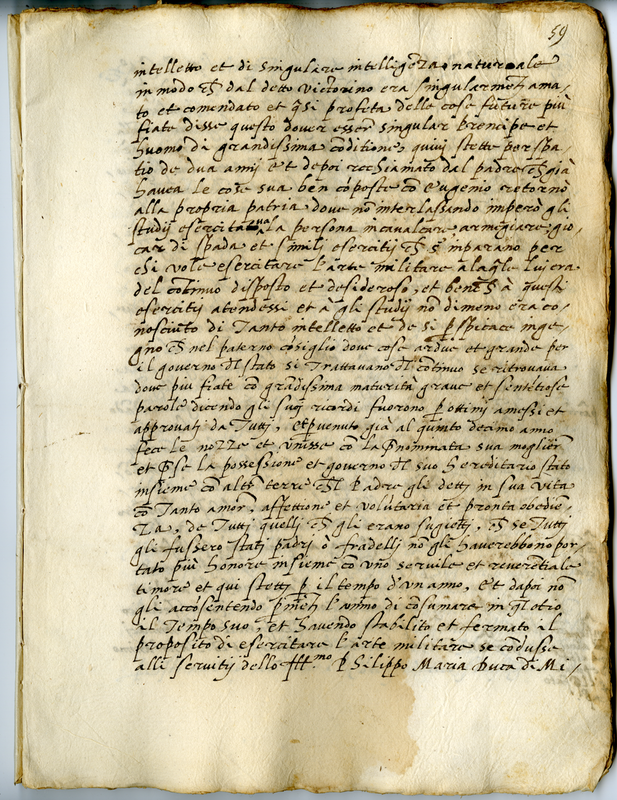 59
intelletto et di singulare intelligẽza naturale
in modo c̃h dal detto victorino era singularmeñ ama,
to et comendato et q̃si profeta delle cose future più
fiate disse questo dover esser singular Prencipe et
huomo di grandissima cõditione, quivi stette per spa,
tio de dua anni et depoi rechiamato dal padre c̃h già
havea le cose sua ben cõposte cõ Eugenio retornò
alla propria patria dove nõ interlassando imperò gli
studij esercitava la persona in cavalcare armigiare, gio,
car di spada et simili esercitij c̃h s' inparano per
chi vole esercitare l'arte militare a laq̃le lui era
del cõtinuo disposto et desideroso, et benc̃h à questi
esercitij atendessi et à gli studij nõ dimeno era co,
nosciuto di Tanto intelletto et de si p̱spicace inge,
gno c̃h nel paterno cõsiglio dove cose ardue et grande per
il governo d̃l stato si Trattavano d̃l cõtinuo se ritrovava
dove piu fiate cõ grãdissima maturità grave et sentẽtiose
parole dicendo gli suoj ricordi fuorono p̱ ottimi amessi et
approvatj da Tuttj, et p̱venuto già al quinto decimo anno
fece le nozze et unisse cõ la p̃nominata sua moglier
et p̃se la possessione et governo d̃l suo hereditario stato
insieme cõ altr̃ terre c̃h'l Padre gli dettj in sua vita
cõ Tanto amor, affettione et volũtaria et pronta obediẽ,
za, de Tutti quelli c̃h gli erano sugietti, c̃h se Tutti
gli fussero statj padrj ò fradelli no gli haverebbono por,
tato più honore insieme cõ uno servile et reverẽtiale
timore et qui stettj p̱ il tempo d'un anno, Et dapoi nõ
gli accõsentendo l'animo di cõsumare in q̃l otio
il Tempo suo, et havendo stabilito et fermato il
proposito di esercitare l'arte militare se cõdusse
alli servitij dello Ill.mo Philippo Maria Duca di Mi,